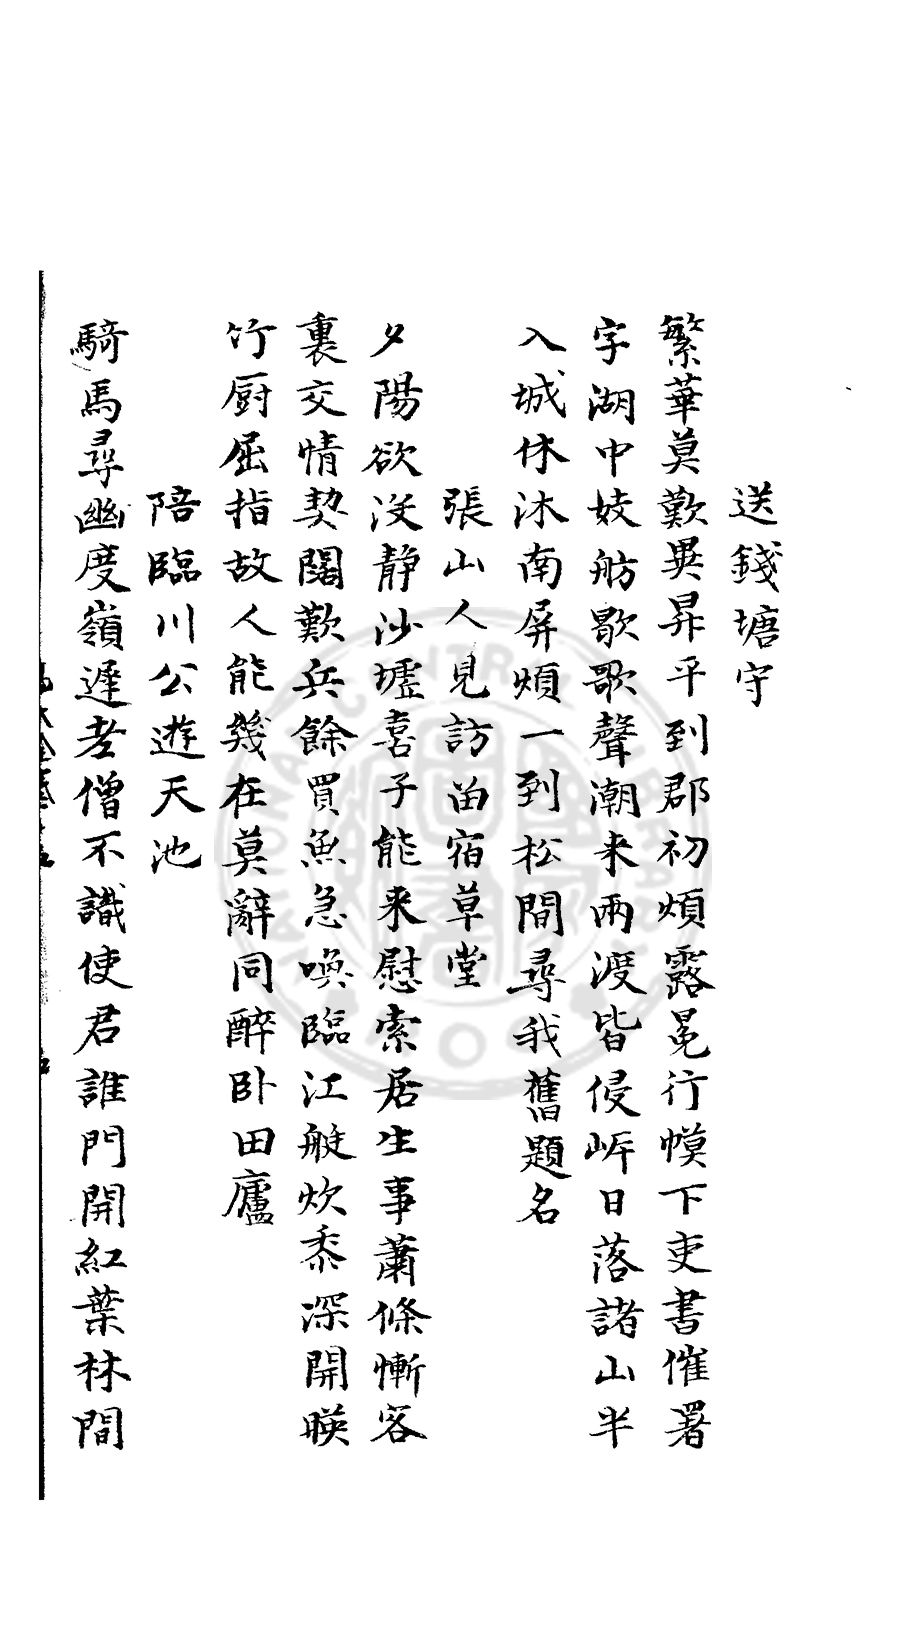 送錢塘守
繁華莫歎異昇平到郡初煩露冕行幙下吏書催署
字湖中妓舫歇歌聲潮来兩渡皆侵岸日落諸山半
入城休沐南屏煩一到松間尋我舊題名
張山人見訪留宿草堂
夕陽欲没静沙墟喜子能来慰索居生事蕭條慚客
裏交情契闊歎兵餘買魚急喚臨江艇炊黍深開暎
竹厨屈指故人能幾在莫辭同醉卧田廬
陪臨川公遊天池
騎馬尋幽度嶺遲老僧不識使君誰門開紅葉林間